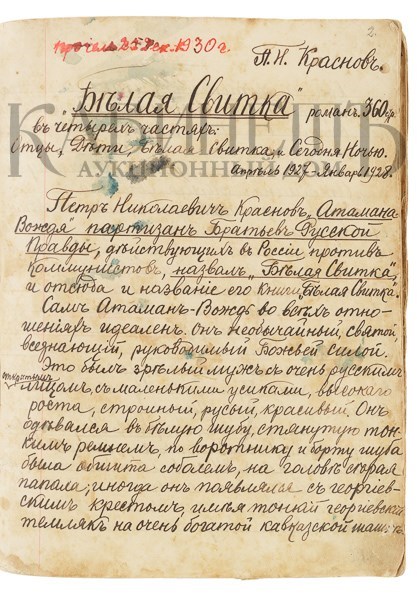 прочелъ 25 Дек. 1930 г.
2.
П. Н. Красновъ.
"Бѣлая Свитка" романъ. 360 стр.
въ четырехъ частяхъ:
Отцы, Дѣти, Бѣлая Свитка, и Сегодня Ночью.
Апрѣль 1927 - Январь 1928.
КАБИНЕТЪ
АУКЦИОННЫЙ ДОМ
Петръ Николаевичъ Красновъ, Атамана
Вождя партизанъ Братьевъ Русской
Правды, дѣйствующихъ въ Россіи противъ
Коммунистовъ, назвалъ „Бѣлая Свитка",
и отсюда и названіе его книги „Бѣлая Свитка".
Самъ Атаманъ-Вождь во всѣхъ отно-
шеніяхъ идеаленъ. Онъ необычайный, святой,
всезнающій, руководимый Божьей силой.
Это былъ зрѣлый мужъ съ очень русскимъ
открытымъ
лицомъ, съ маленькими усиками, высокаго
роста, стройный, русый, красивый. Онъ
одѣвался въ бѣлую шубу, стянутую тон-
кимъ ремнемъ, по воротнику и борту шуба
была обшита соболемъ, на головѣ сѣрая
папаха; иногда онъ появлялся съ георгіев-
скимъ крестомъ, имѣя тонкій георгіевскій
темлякъ на очень богатой кавказской шашкѣ.